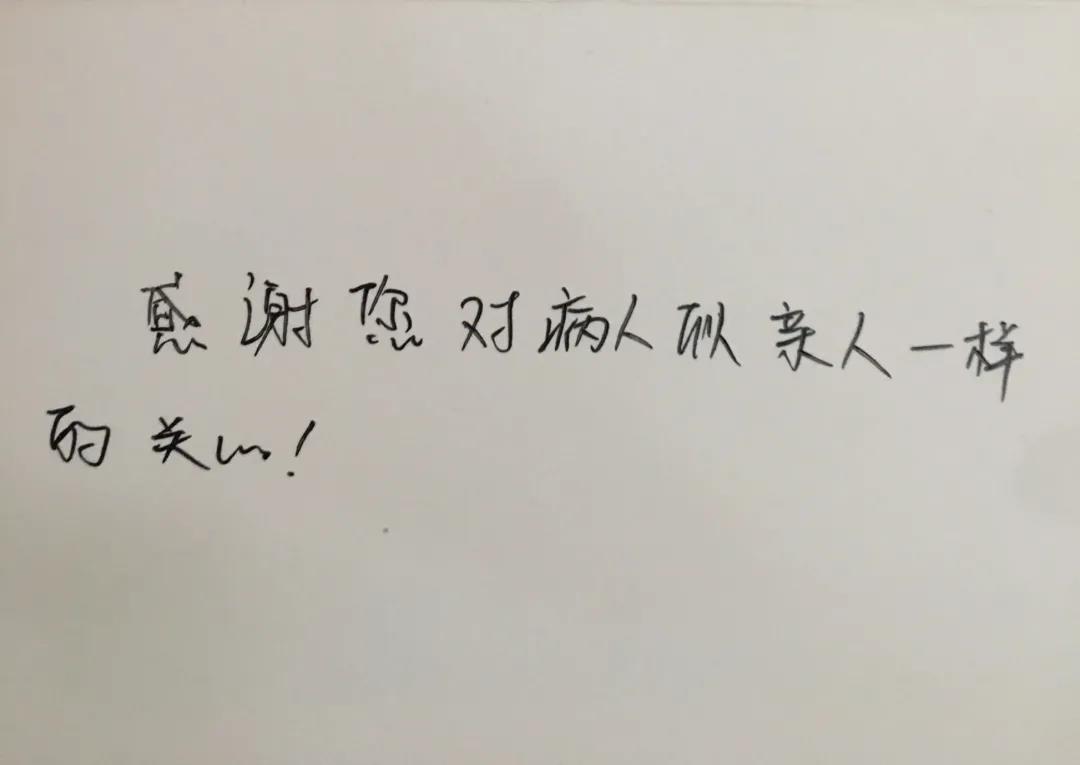 感谢您对病人似亲人一样
的关心!